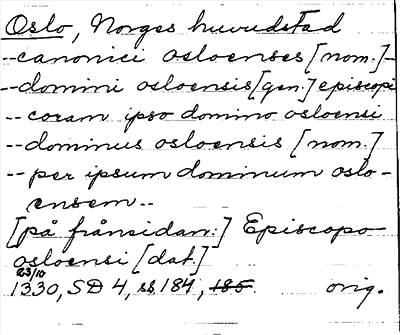 Oslo, Norges huvudstad
--canonici osloenses [nom.]--
--domini osloensis [gen.] episcopi
--coram ipso domino osloensi
--dominus osloensis [nom.]
--per ipsum dominum oslo-
ensem--
[på frånsidan:] Episcopo
osloensi [dat.]
23/10
1330, SD 4, ss 184, 185. orig.